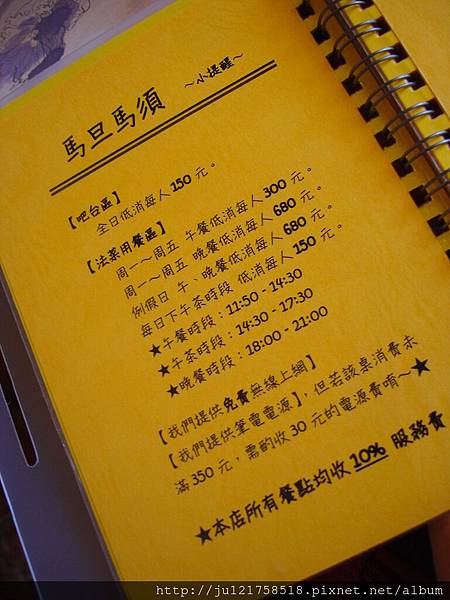 馬旦馬須 ～小提醒～
【吧台區】
全日低消每人 150 元。
【法菜用餐區】
周一～周五 午餐低消每人 300 元。
周一～周五 晚餐低消每人 680 元。
例假日 午、晚餐低消每人 680 元。
每日下午茶時段 低消每人 150 元。
★午餐時段：11:50 - 14:30
★午茶時段：14:30 - 17:30
★晚餐時段：18:00 - 21:00
【我們提供免費無線上網】
【我們提供筆電電源】，但若該桌消費未
滿 350 元，需酌收 30 元的電源費唷～★
★本店所有餐點均收 10% 服務費
http://ju121758518.pixnet.net/album